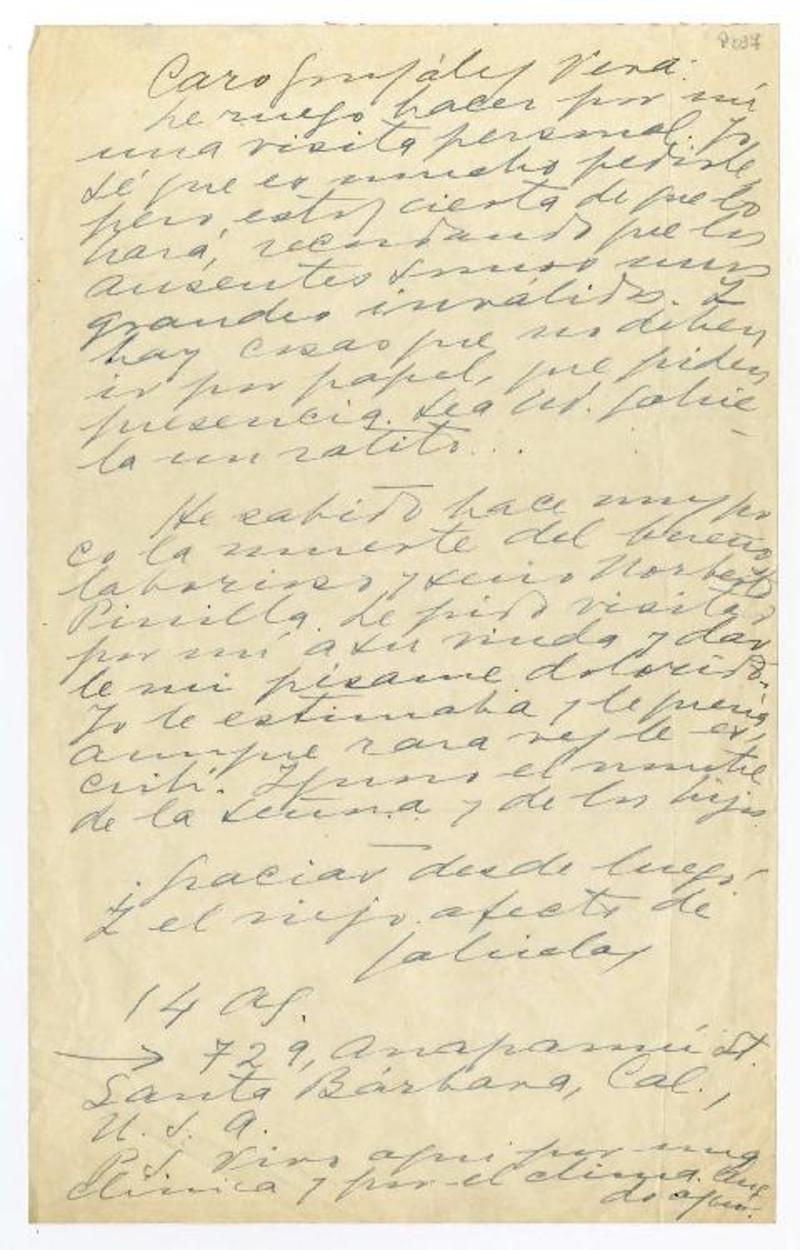 Caro González Vera:
Le ruego hacer por mí
una visita personal. Yo
sé que es mucho pedirle,
pero estoy cierta de que lo
hará, recordando que los
ausentes somos unos
grandes inválidos. Y
hay cosas que no deben
ir por papel, que piden
presencia. Sea Ud. Gabrie-
la un ratito...
He sabido hace muy po
co la muerte del bueno,
laborioso y Norberto
Pinilla. Le pido visitar
por mí a su viuda y dar
le mi pésame dolorido.
Yo le estimaba y le quería,
aunque rara vez le es-
cribí. Ignoro el nombre
de la señora y de los hijos.
¡Gracias desde luego!
Y el viejo afecto de
Gabriela
14 Ag.
→ 729, Anapamú St.
Santa Bárbara, Cal.,
U. S. A.
P. S. Vivo aquí por una
clínica y por el clima.